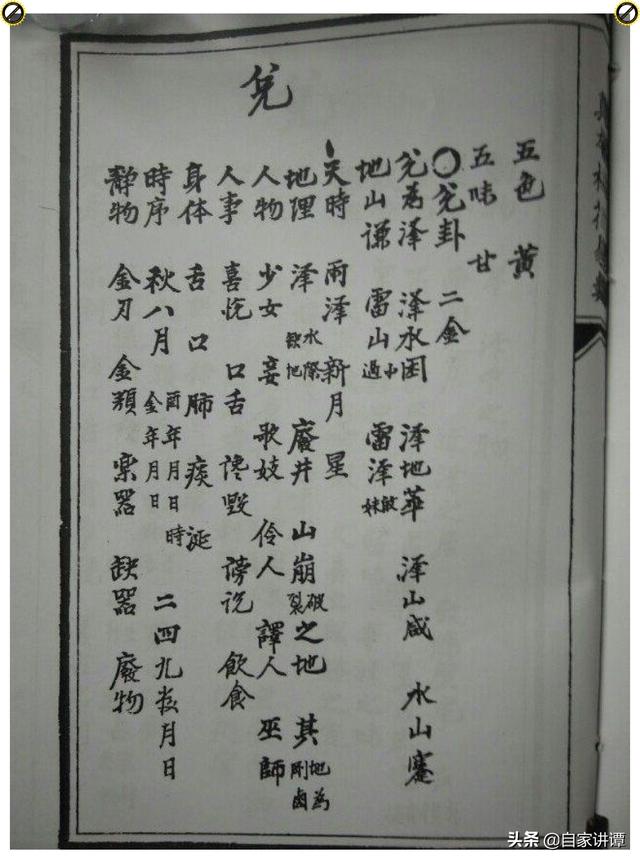 兑
五色 黄
五味 甘
○兑卦 二金
兑為泽 泽水困 泽地萃 泽山咸 水山蹇
地山谦 雷山小過 雷泽归妹
天時 雨泽 新月 星
地理 泽 水際缺地 廢井 山崩破裂之地 其地為剛鹵
人物 少女 妾 歌妓 伶人 譯人 巫師
人事 喜悦 口舌 谗毁 谤说 飲食
身体 舌 口 肺 痰 涎
時序 秋八月 酉年月日時 金年月日 二四九数月日
静物 金刃 金類 楽器 缺器 廢物
头条 @自家讲谭